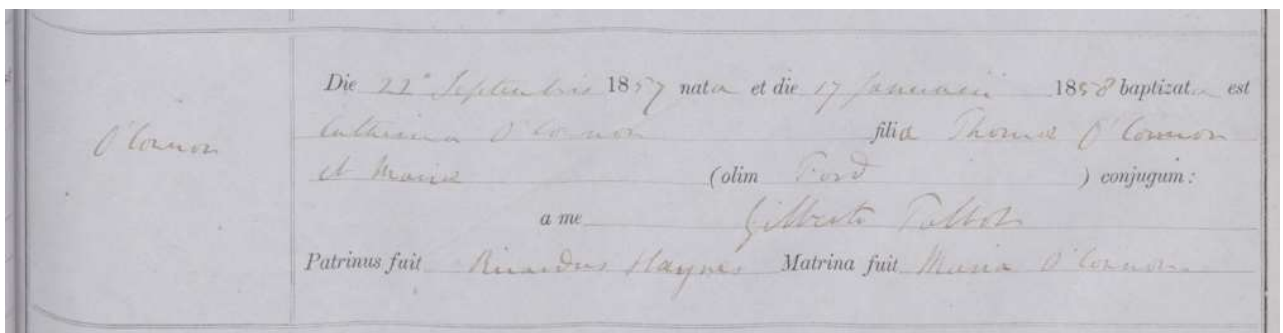 Die 22° Septembris 1857 nata et die 17 Januarii 1858 baptizata est
O'Connor
Catherina O'Connor filia Thomæ O'Connor
et Mariæ (olim Ford ) conjugum:
a me Gilberto Talbot
Patrinus fuit Ricardus Haynes Matrina fuit Maria O'Connor